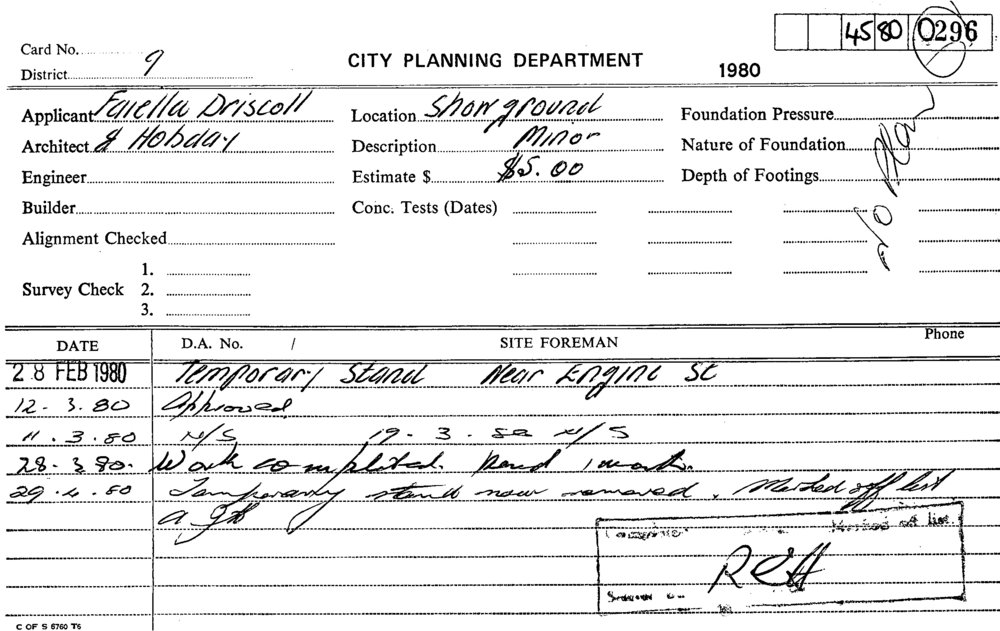 45 80 0296
Card No.
District 9
CITY PLANNING DEPARTMENT
1980
Applicant Faiella Driscoll
Architect & Hobday
Engineer
Builder
Alignment Checked
Survey Check 1.
2.
3.
Location Showground
Description Minor
Estimate $ $5.00
Conc. Tests (Dates)
Foundation Pressure
Nature of Foundation
Depth of Footings
No Plan
DATE D.A. No. / SITE FOREMAN Phone
28 FEB 1980 Temporary Stand Near Engine St
12. 3. 80 Approved
11. 3. 80 N/S 19. 3. 80 N/S
28. 3. 80. Work completed. Pend 1 month.
29. 4. 80 Temporary stand now removed. Marked off list
Marked off list
C OF S 6760 T6